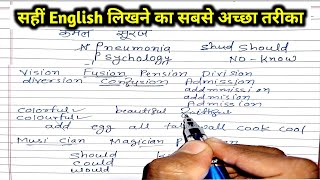 सहीं English लिखने का सबसे अच्छा तरीका
कमल सूरज
Pneumonia Shud Should
Psychology NO - Know
Vision Fusion Pension Division
diversion Confusion Admission
addmission
admision
Admission
colorful beautiful
colourful
add egg all fall wall cook cool
Musician Magician
Should
could
would